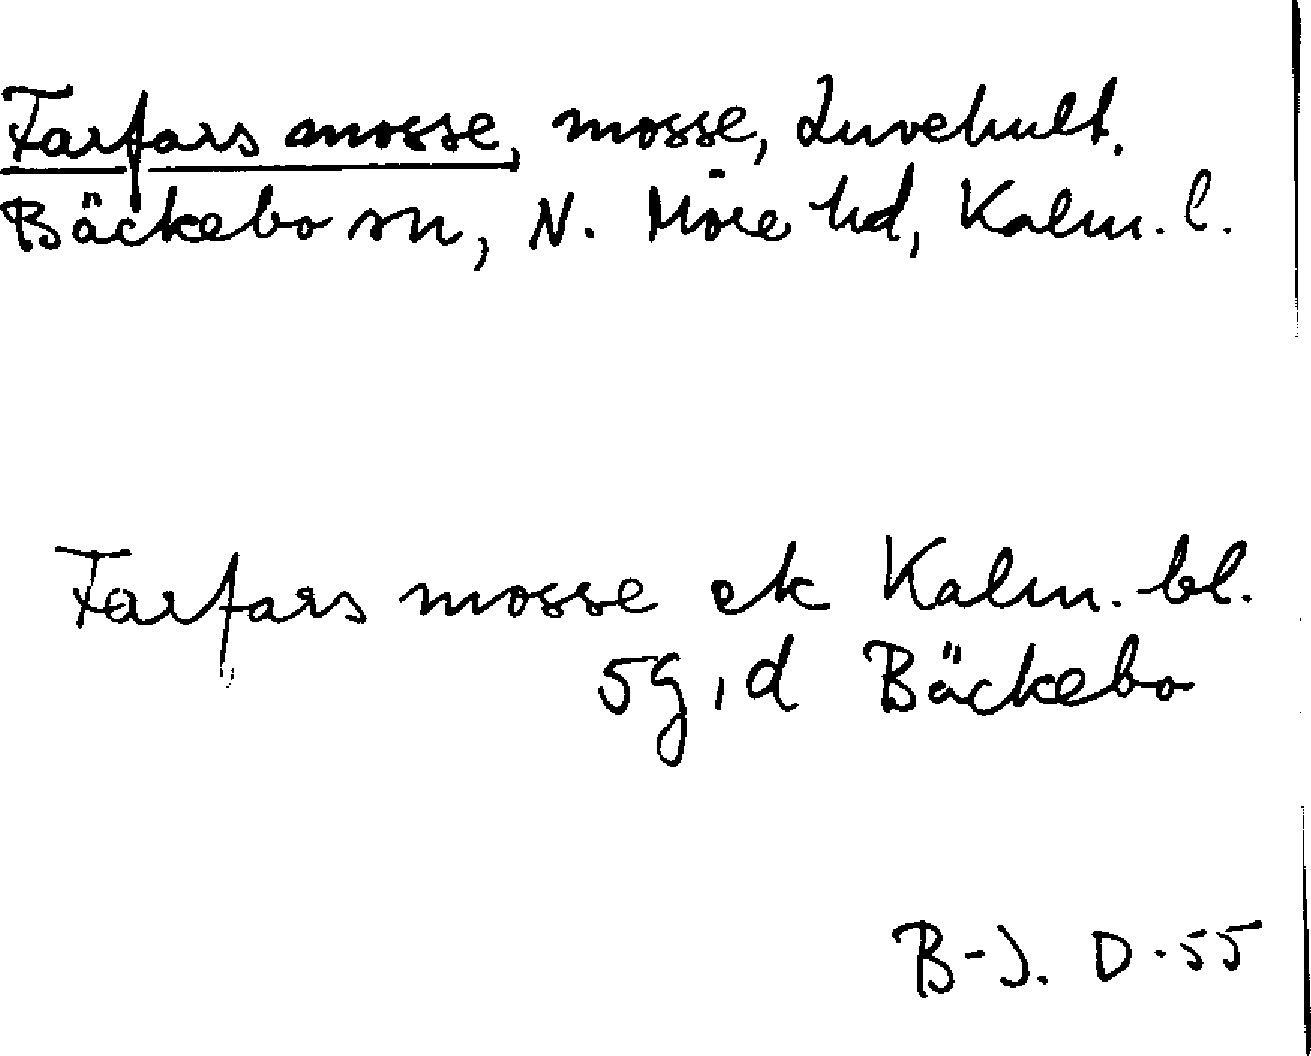 Farfars mosse, mosse, Luvehult.
Bäckebo sn, N. Möre hd, Kalm. l.
Farfars mosse ek Kalm. bl.
5g, d Bäckebo
B-J. D-55